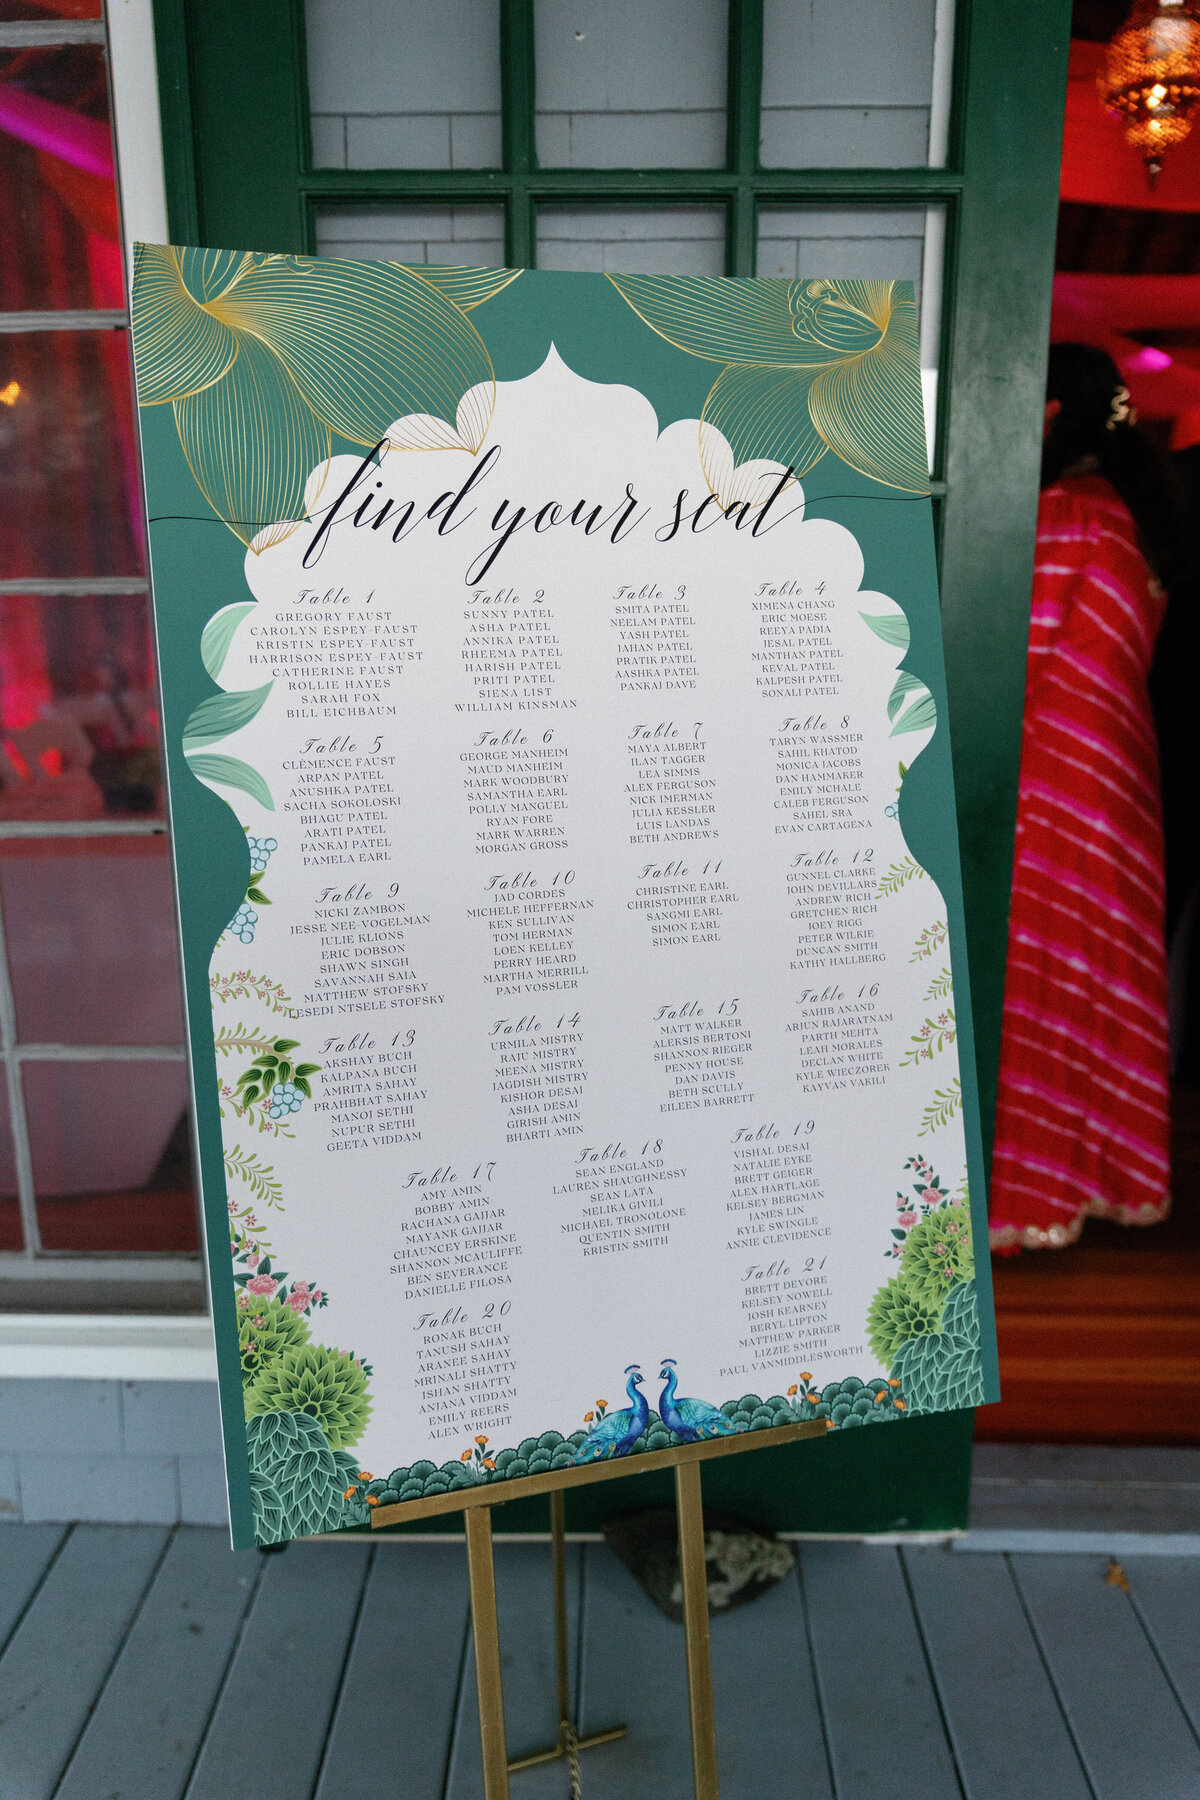 find your seat
Table 1
GREGORY FAUST
CAROLYN ESPEY-FAUST
KRISTIN ESPEY-FAUST
HARRISON ESPEY-FAUST
CATHERINE FAUST
ROLLIE HAYES
SARAH FOX
BILL EICHBAUM
Table 2
SUNNY PATEL
ASHA PATEL
ANNIKA PATEL
RHEEMA PATEL
HARISH PATEL
PRITI PATEL
SIENA LIST
WILLIAM KINSMAN
Table 3
SMITA PATEL
NEELAM PATEL
YASH PATEL
JAHAN PATEL
PRATIK PATEL
AASHKA PATEL
PANKAJ DAVE
Table 4
XIMENA CHANG
ERIC MOESE
REEYA PADIA
JESAL PATEL
MANTHAN PATEL
KEVAL PATEL
KALPESH PATEL
SONALI PATEL
Table 5
CLÉMENCE FAUST
ARPAN PATEL
ANUSHKA PATEL
SACHA SOKOLOSKI
BHAGU PATEL
ARATI PATEL
PANKAJ PATEL
PAMELA EARL
Table 6
GEORGE MANHEIM
MAUD MANHEIM
MARK WOODBURY
SAMANTHA EARL
POLLY MANGUEL
RYAN FORE
MARK WARREN
MORGAN GROSS
Table 7
MAYA ALBERT
ILAN TAGGER
LEA SIMMS
ALEX FERGUSON
NICK IMERMAN
JULIA KESSLER
LUIS LANDAS
BETH ANDREWS
Table 8
TARYN WASSMER
SAHIL KHATOD
MONICA JACOBS
DAN HAMMAKER
EMILY MCHALE
CALEB FERGUSON
SAHEL SRA
EVAN CARTAGENA
Table 9
NICKI ZAMBON
JESSE NEE-VOGELMAN
JULIE KLIONS
ERIC DOBSON
SHAWN SINGH
SAVANNAH SAIA
MATTHEW STOFSKY
LESEDI NTSELE STOFSKY
Table 10
JAD CORDES
MICHELE HEFFERNAN
KEN SULLIVAN
TOM HERMAN
LOEN KELLEY
PERRY HEARD
MARTHA MERRILL
PAM VOSSLER
Table 11
CHRISTINE EARL
CHRISTOPHER EARL
SANGMI EARL
SIMON EARL
SIMON EARL
Table 12
GUNNEL CLARKE
JOHN DEVILLARS
ANDREW RICH
GRETCHEN RICH
JOEY RIGG
PETER WILKIE
DUNCAN SMITH
KATHY HALLBERG
Table 13
AKSHAY BUCH
KALPANA BUCH
AMRITA SAHAY
PRAHBHAT SAHAY
MANOJ SETHI
NUPUR SETHI
GEETA VIDDAM
Table 14
URMILA MISTRY
RAJU MISTRY
MEENA MISTRY
JAGDISH MISTRY
KISHOR DESAI
ASHA DESAI
GIRISH AMIN
BHARTI AMIN
Table 15
MATT WALKER
ALEKSIS BERTONI
SHANNON RIEGER
PENNY HOUSE
DAN DAVIS
BETH SCULLY
EILEEN BARRETT
Table 16
SAHIB ANAND
ARJUN RAJARATNAM
PARTH MEHTA
LEAH MORALES
DECLAN WHITE
KYLE WIECZOREK
KAYVAN VAKILI
Table 17
AMY AMIN
BOBBY AMIN
RACHANA GAJJAR
MAYANK GAJJAR
CHAUNCEY ERSKINE
SHANNON MCAULIFFE
BEN SEVERANCE
DANIELLE FILOSA
Table 18
SEAN ENGLAND
LAUREN SHAUGHNESSY
SEAN LATA
MELIKA GIVILI
MICHAEL TRONOLONE
QUENTIN SMITH
KRISTIN SMITH
Table 19
VISHAL DESAI
NATALIE EYKE
BRETT GEIGER
ALEX HARTLAGE
KELSEY BERGMAN
JAMES LIN
KYLE SWINGLE
ANNIE CLEVIDENCE
Table 20
RONAK BUCH
TANUSH SAHAY
ARANEE SAHAY
MRINALI SHATTY
ISHAN SHATTY
ANJANA VIDDAM
EMILY REERS
ALEX WRIGHT
Table 21
BRETT DEVORE
KELSEY NOWELL
JOSH KEARNEY
BERYL LIPTON
MATTHEW PARKER
LIZZIE SMITH
PAUL VANMIDDLESWORTH